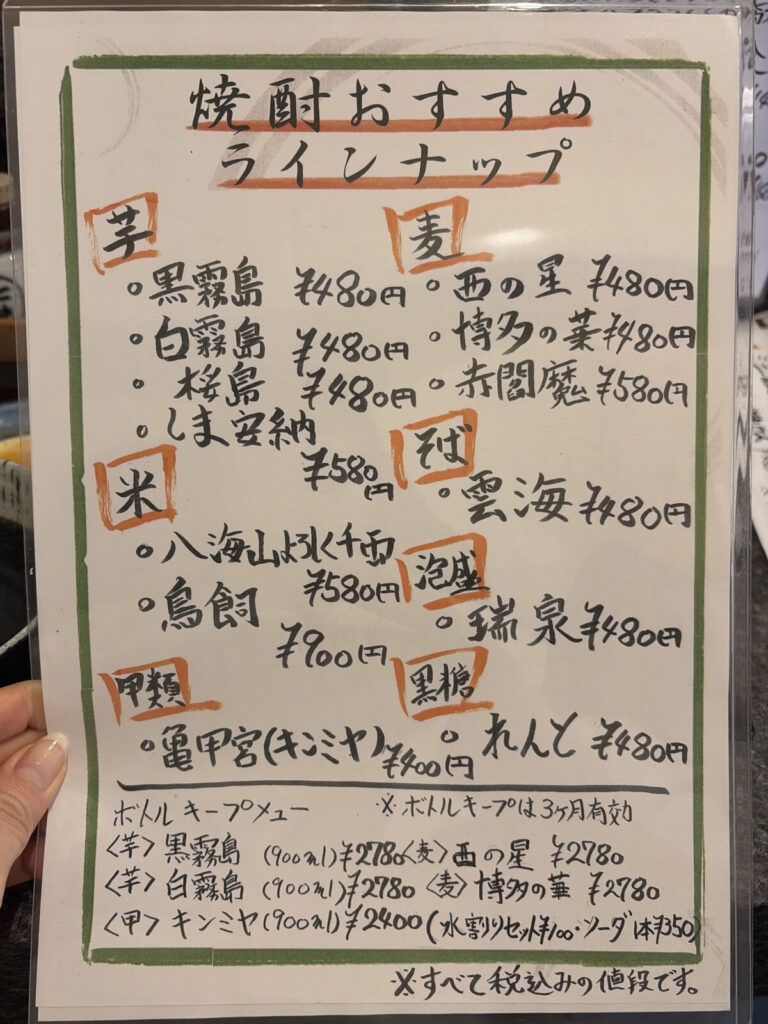 焼酎おすすめ
ラインナップ
芋
・黒霧島 ¥480円
・白霧島 ¥480円
・桜島 ¥480円
・しま安納
¥580円
米
・八海山よろしく千萬
¥580円
・鳥飼
¥900円
甲類
・亀甲宮(キンミヤ)
¥400円
麦
・西の星 ¥480円
・博多の華 ¥480円
・赤閻魔 ¥580円
そば
・雲海 ¥480円
泡盛
・瑞泉 ¥480円
黒糖
・れんと ¥480円
ボトルキープメュー ※ボトルキープは3ヶ月有効
〈芋〉黒霧島 (900ml) ¥2780 〈麦〉西の星 ¥2780
〈芋〉白霧島 (900ml) ¥2780 〈麦〉博多の華 ¥2780
〈甲〉キンミヤ(900ml) ¥2400 (水割りセット¥100・ソーダ1本¥350)
※すべて税込みの値段です。